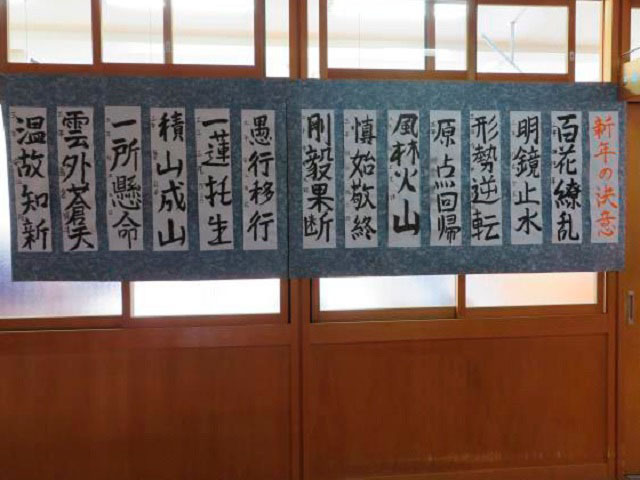 新年の決意
百花繚乱
明鏡止水
形勢逆転
原点回帰
風林火山
慎始敬終
剛毅果断
愚行移行
一蓮托生
積山成山
一所懸命
雲外蒼天
温故知新